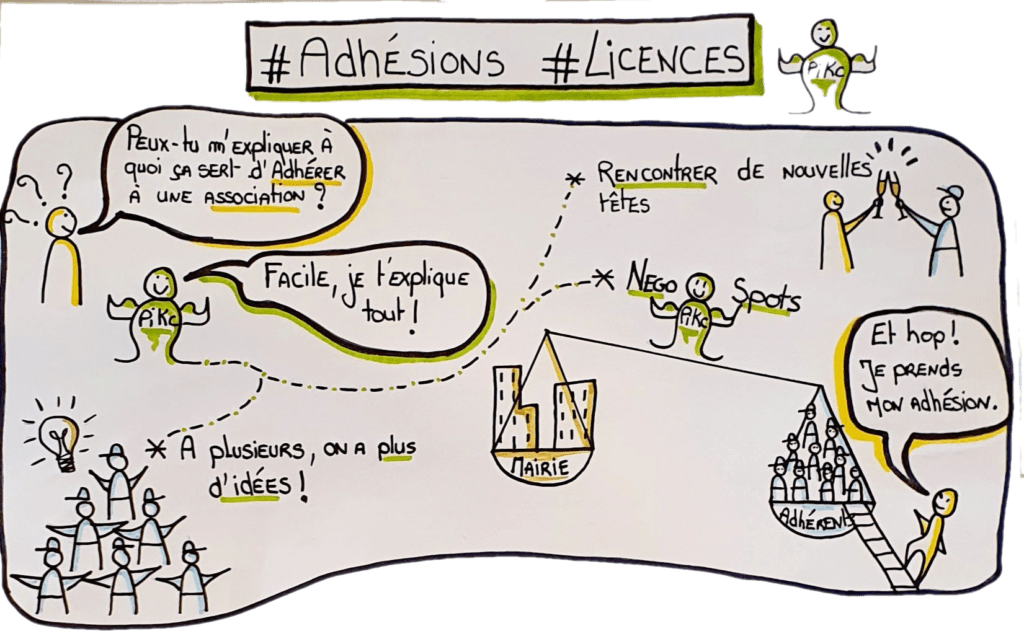 #Adhésions #Licences
PiKc
Peux-tu m'expliquer à
quoi ça sert d'Adhérer
à une association ?
Facile, je t'explique
tout !
PiKc
* Rencontrer de nouvelles
têtes
* Nego Spots
PiKc
Et hop !
Je prends
mon adhésion.
* A plusieurs, on a plus
d'idées !
Mairie
Adhérents